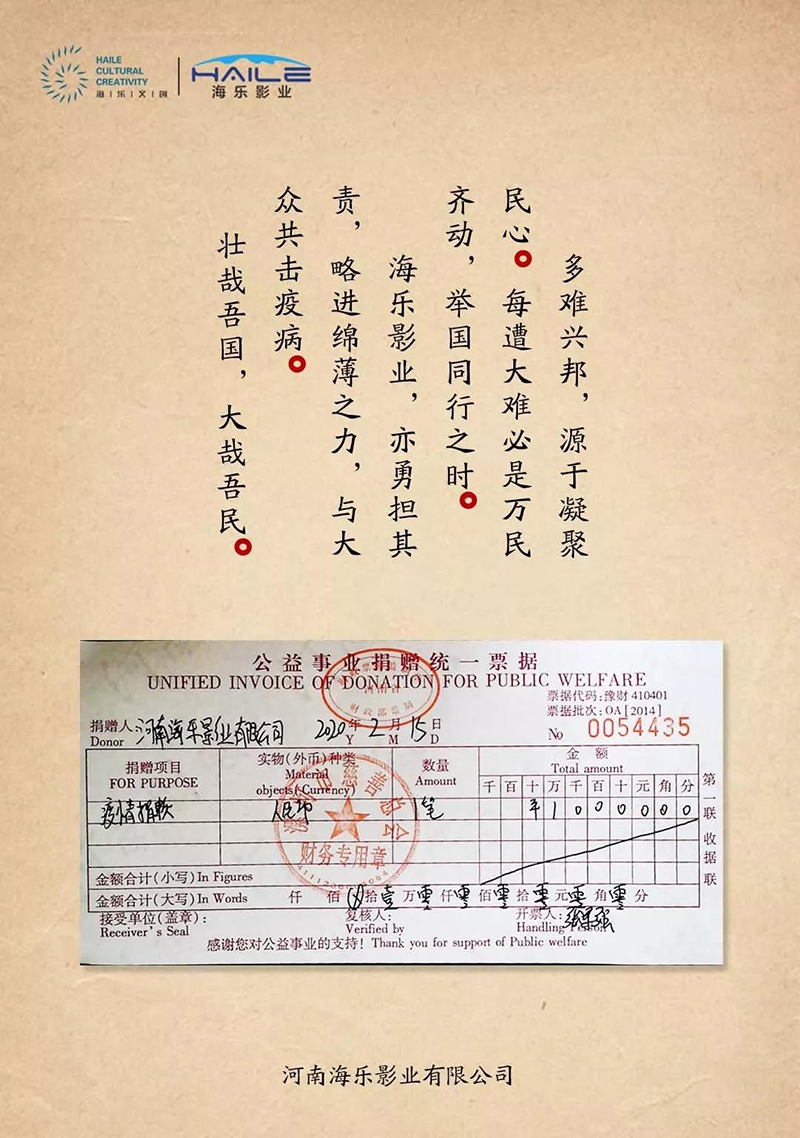 HAILE
CULTURAL
CREATIVITY
海乐文创
HAILE
海乐影业
多难兴邦，源于凝聚
民心。每遭大难必是万民
齐动，举国同行之时。
海乐影业，亦勇担其
责，略进绵薄之力，与大
众共击疫病。
壮哉吾国，大哉吾民。
公益事业捐赠统一票据
UNIFIED INVOICE OF DONATION FOR PUBLIC WELFARE
财政部监制
票据代码:豫财 410401
票据批次:OA[2014]
捐赠人 河南海乐影业有限公司 2020年2月15日
Donor Y M D
No 0054435
捐赠项目 实物(外币)种类 数量 金额
FOR PURPOSE Material objects(Currency) Amount Total amount
千百十万千百十元角分
疫情捐款 人民币 1笔 ¥1000000
金额合计(小写)In Figures
金额合计(大写)In Words 仟 佰 拾壹万零仟零佰零拾零元零角零分
接受单位(盖章): 复核人: 开票人:
Receiver's Seal Verified by Handling Person
感谢您对公益事业的支持! Thank you for support of Public welfare
第一联 收据联
慈善总会
财务专用章
河南海乐影业有限公司